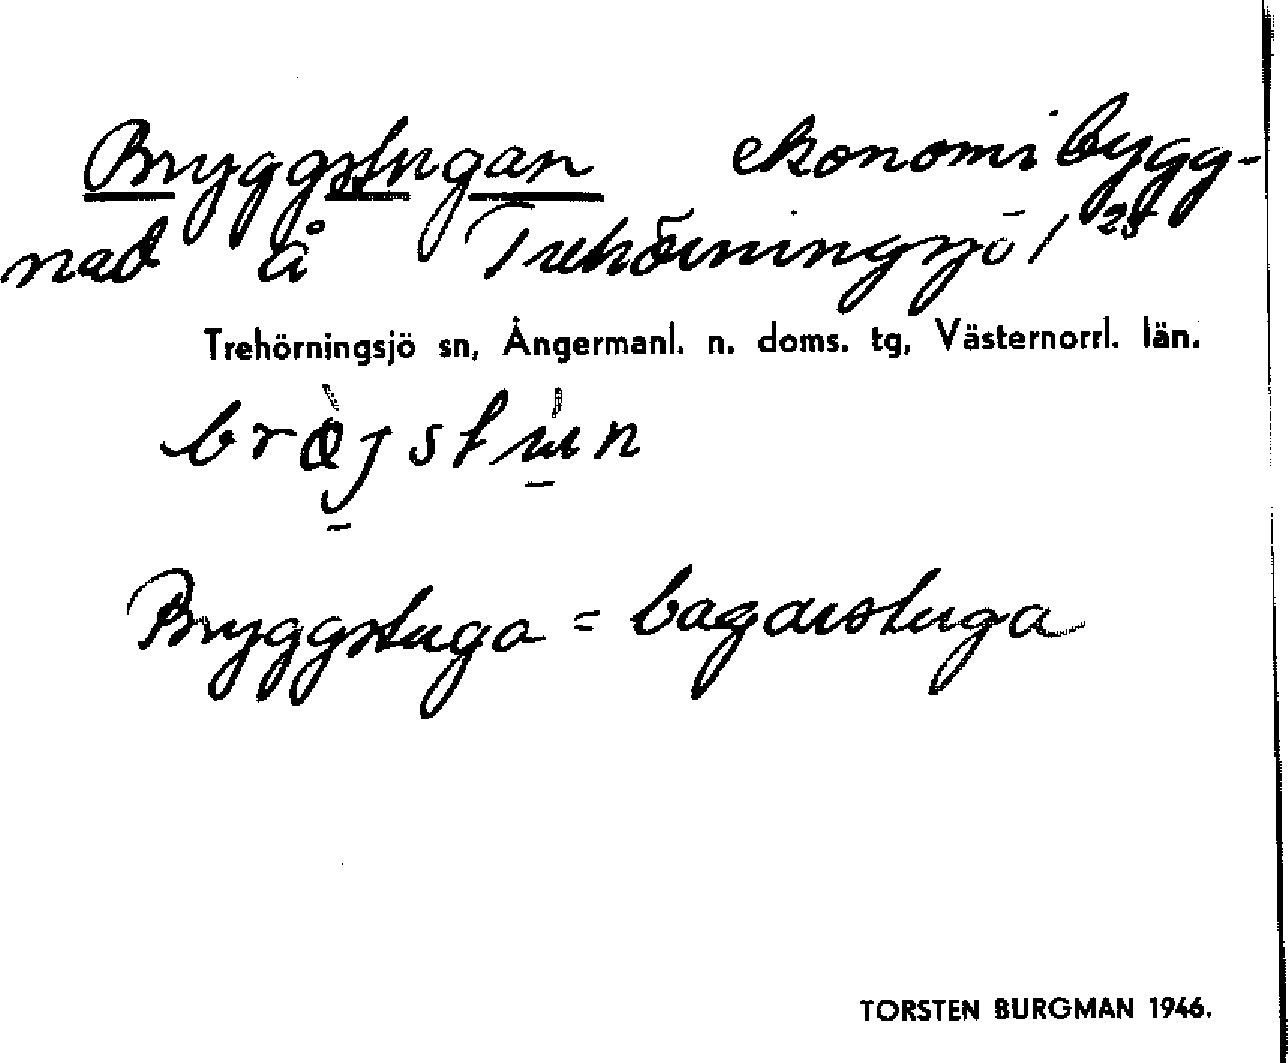 Bryggstugan ekonomibygg-
nad å Trehörningsjö 1²⁵
Trehörningsjö sn, Ångermanl. n. doms. tg, Västernorrl. län.
Bryggstuga = bagarstuga
TORSTEN BURGMAN 1946.